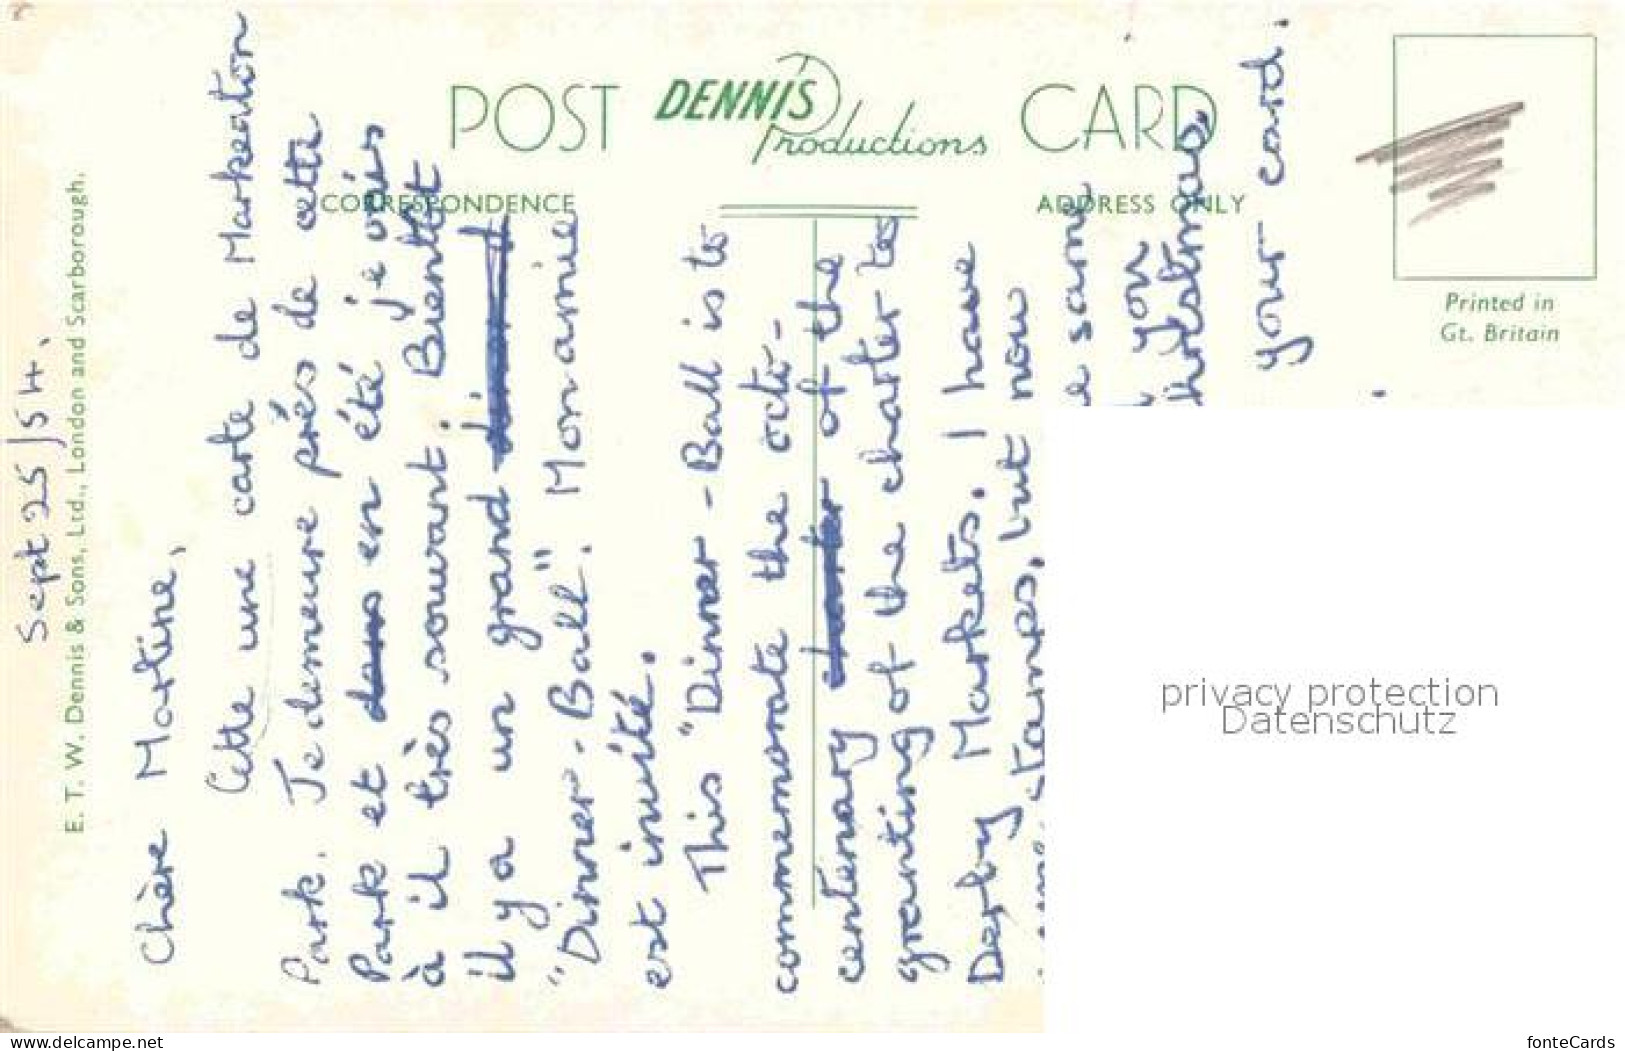 POST DENNIS Productions CARD
CORRESPONDENCE
ADDRESS ONLY
Printed in
Gt. Britain
E. T. W. Dennis & Sons, Ltd., London and Scarborough.
Sept 25/54.
Chère Martine,
Cette une carte de Markeaton
Park. Je demeure près de cette
Park et dans en été je vais
à il très souvant. Bientôt
il y a un grand
"Dinner-Ball". Mon amie
est invité.
This "Dinner-Ball is to
commemorate the octo-
centenary charter of the
granting of the charter to
Derby Markets. I have
stamps, but now
same
you
Christmas.
your card.
privacy protection
Datenschutz
delcampe.net
fonteCards